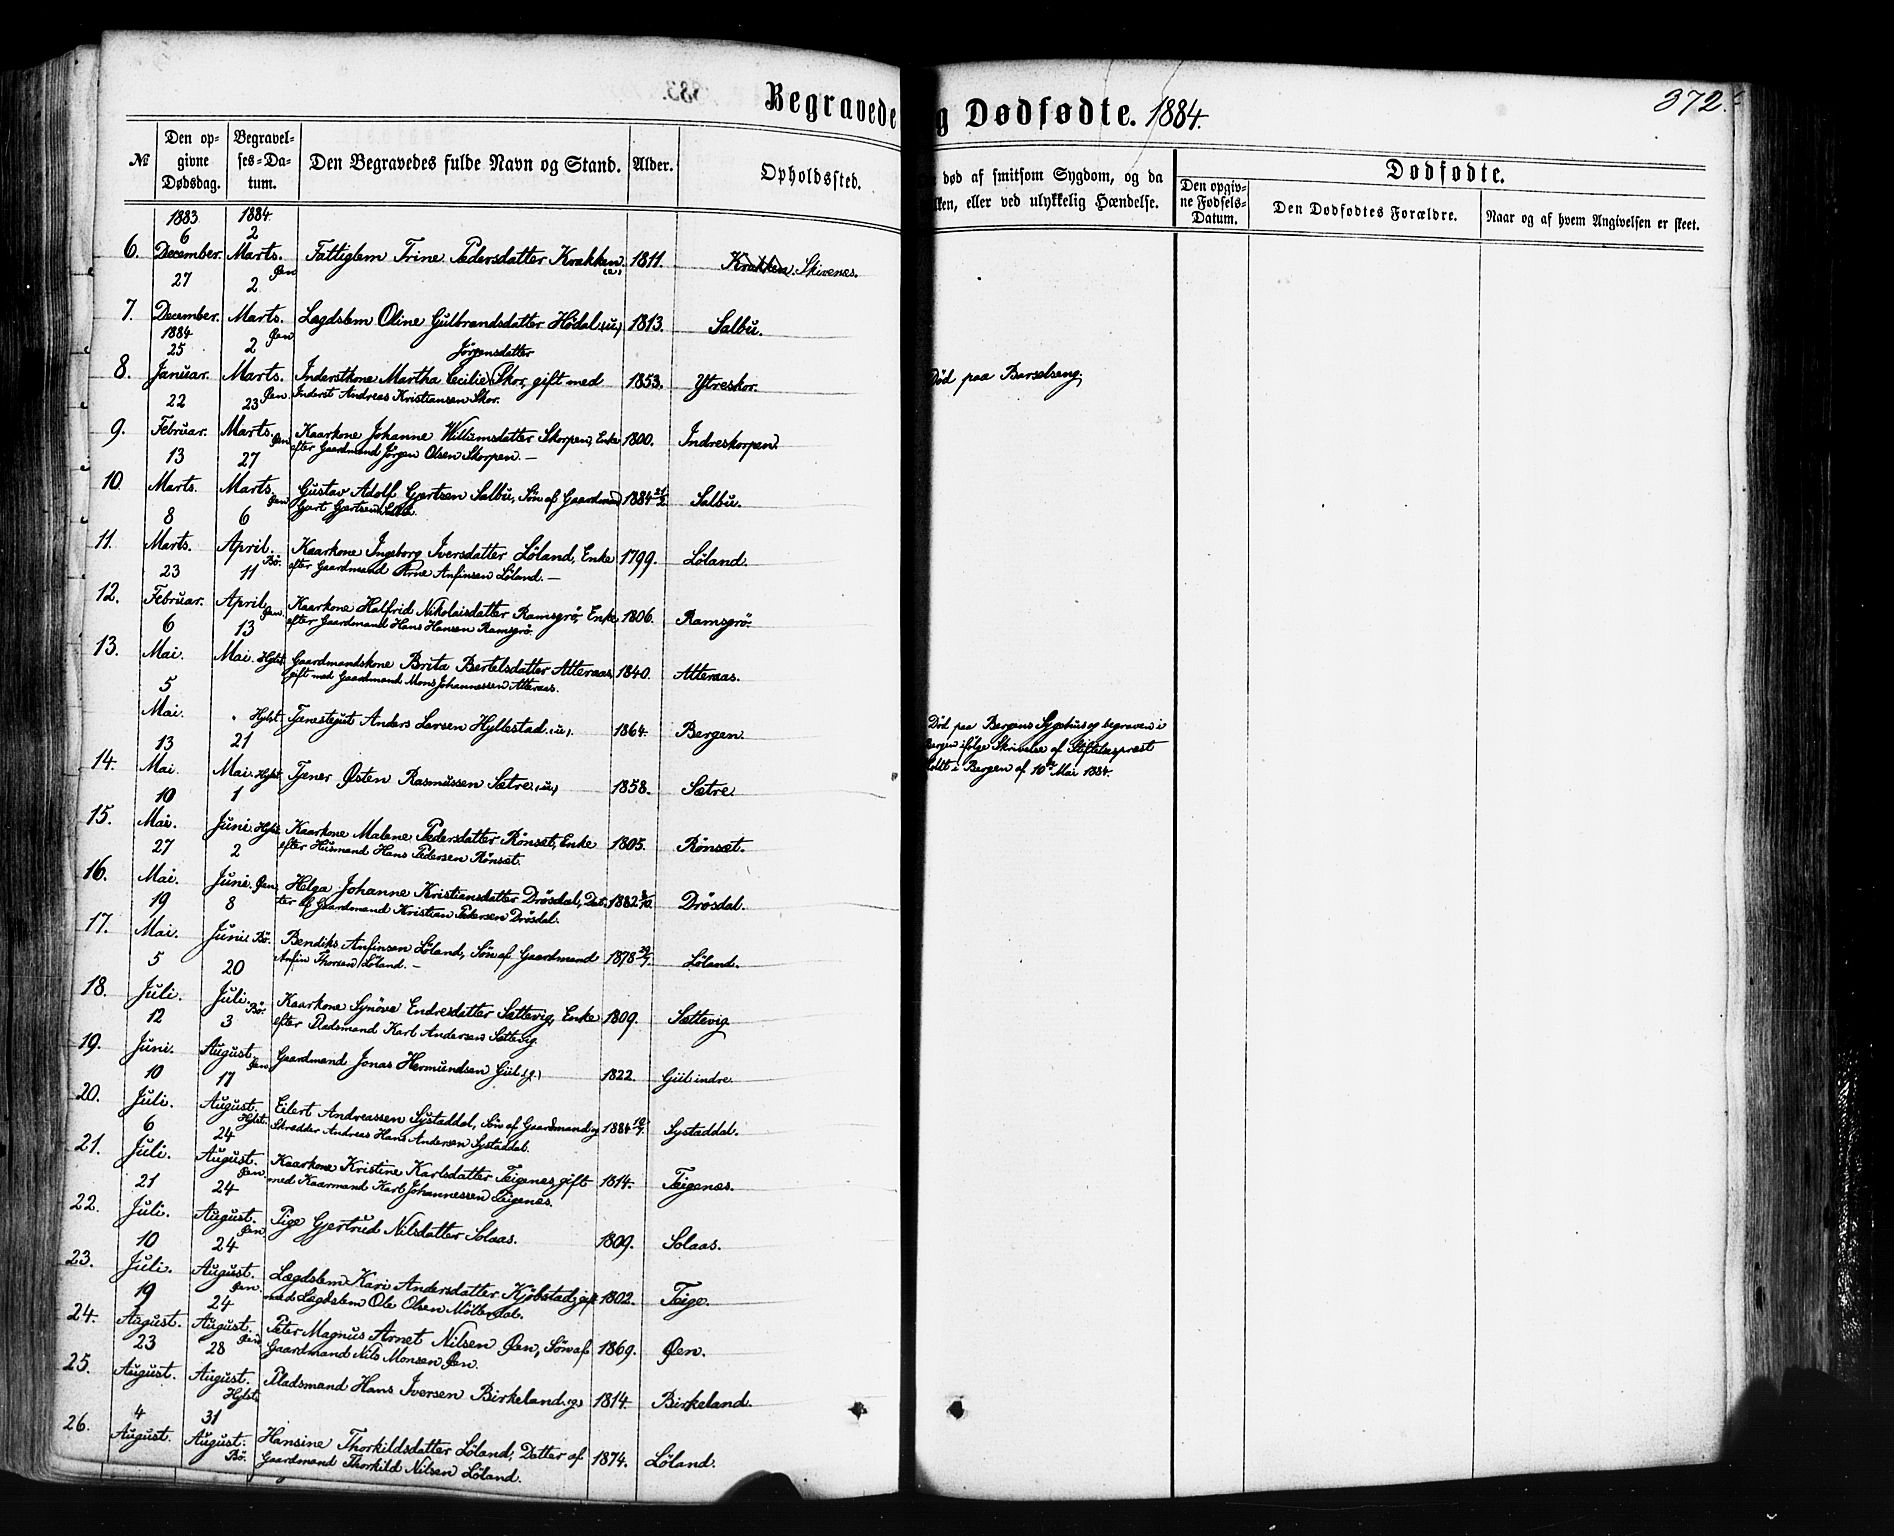 Begravede
g Dødfødte. 1884.
372.
№
Den op-
givne
Dødsdag.
Begravel-
ses-Da-
tum.
Den Begravedes fulde Navn og Stand.
Alder.
Opholdssted.
død af smitsom Sygdom, og da
lken, eller ved ulykkelig Hændelse.
Dødfødte.
Den opgiv-
ne Fødsels-
Datum.
Den Dødfødtes Forældre.
Naar og af hvem Angivelsen er skeet.
1883 1884
6 2
6. December. Marts. Fattiglem Trine Pedersdatter Krakken 1811. Krakken Skivenes.
Øen
27 2
7. December. Marts. Lægdslem Oline Gulbrandsdatter Hødal (u) 1813. Salbu.
1884 Øen
25 2 Jørgensdatter
8. Januar. Marts. Inderstkone Martha Cecilie Skor, gift med 1853. Ytreskor. Død paa Barselseng.
Øen Inderst Andreas Kristiansen Skor.
22 23
9. Februar. Marts. Kaarkone Johanne Willumsdatter Skorpen, Enke 1800. Indreskorpen.
Øen efter Gaardmand Jørgen Olsen Skorpen. —
13 27
10. Marts. Marts. Gustav Adolf Gjertsen Salbu, Søn af Gaardmand 1884 Salbu.
Øen Gjert Gjertsen
8 6
11. Marts. April. Kaarkone Ingeborg Iversdatter Løland, Enke 1799. Løland.
Bø. efter Gaardmand Arne Anfinsen Løland. —
23 11
12. Februar. April. Kaarkone Halfrid Nikolaisdatter Ramsgrø, Enke 1806. Ramsgrø.
Øen. efter Gaardmand Hans Hansen Ramsgrø.
6 13
13. Mai. Mai. Hylst. Gaardmandskone Brita Bertelsdatter Atteraas, 1840. Atteraas.
gift med Gaardmand Mons Johannessen Atteraas.
5
Mai. " Hylst. Tjenestegut Anders Larsen Hyllestad (u). 1864. Bergen. Død paa Bergens Sygehus og begraven i
Bergen ifølge Skrivelse af Stiftelsespræst
i Bergen af 10de Mai 1884.
13 21
14. Mai. Mai. Hylst. Tjener Østen Rasmussen Sætre (u) 1858. Sætre.
10 1
15. Mai. Juni. Hylst. Kaarkone Malene Pedersdatter Rønset, Enke 1805. Rønset.
efter Husmand Hans Pedersen Rønset.
27 2
16. Mai. Juni. Øen Helga Johanne Kristiansdatter Drøsdal, Dat- 1882 Drøsdal.
ter af Gaardmand Kristian Pedersen Drøsdal.
19 8
17. Mai. Juni. Bø. Bendiks Anfinsen Løland, Søn af Gaardmand 1878 29/7. Løland.
Anfin Thorsen Løland. —
5 20
18. Juli. Juli. Kaarkone Synøve Endresdatter Sættevig, Enke 1809. Sættevig.
Bø. efter Pladsmand Karl Andersen Sættevig.
12 3
19. Juni. August. Gaardmand Jonas Hermundsen Gül (g.) 1822. Gül indre.
Øen
10 17
20. Juli. August. Eilert Andreassen Systaddal, Søn af Gaardmand og 1884 Systaddal.
Hylst. Skrædder Andreas Hans Andersen Systaddal.
6 24
21. Juli. August. Kaarkone Kristine Karlsdatter Teigenes, gift 1814. Teigenes.
Øen med Kaarmand Karl Johannessen Teigenes.
21 24
22. Juli. August. Pige Gjertrud Nilsdatter Solaas. 1809. Solaas.
Øen
10 24
23. Juli. August. Lægdslem Kari Andersdatter Kjøbstad, gift 1802. Teige.
Øen med Lægdslem Ole Olsen
19 24
24. August. August. Peter Magnus Arnet Nilsen Øen, Søn af 1869. Øen.
Øen Gaardmand Nils Monsen Øen.
23 28
25. August. August. Pladsmand Hans Iversen Birkeland (g) 1814. Birkeland.
Hylst.
4 31
26. August. August. Hansine Thorkildsdatter Løland, Datter af 1874. Løland.
Bø. Gaardmand Thorkild Nilsen Løland.